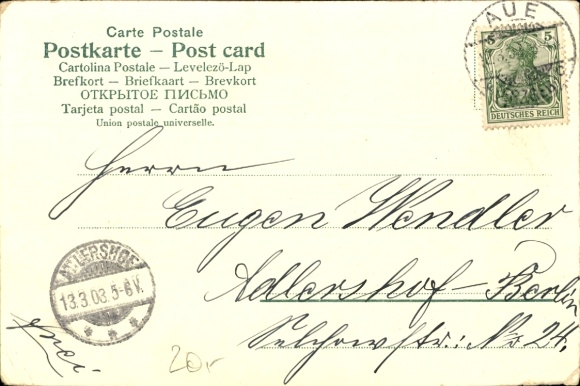 Carte Postale
Postkarte — Post card
Cartolina Postale — Levelezö-Lap
Brefkort — Briefkaart — Brevkort
ОТКРЫТОЕ ПИСЬМО
Tarjeta postal — Cartão postal
Union postale universelle.
AUE
5 5
DEUTSCHES REICH
Herrn
Eugen Wendler
Adlershof-Berlin
ADLERSHOF
13.3.03.5-6V.
No 24.
20,-